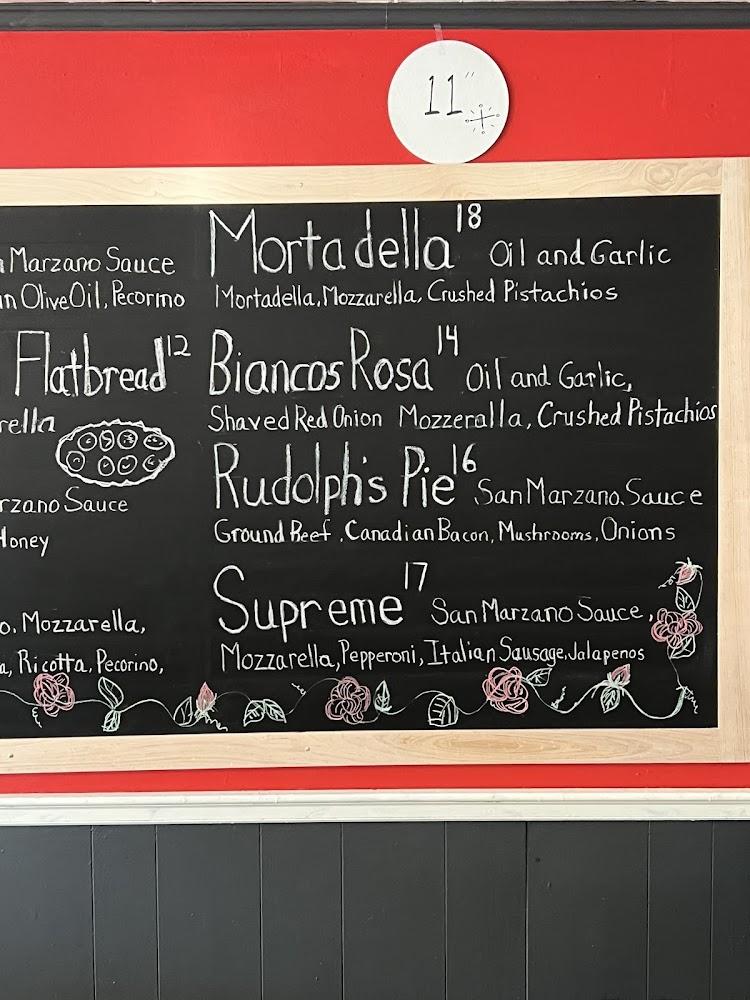 11"
Marzano Sauce
Olive Oil, Pecorino
Flatbread 12
Sauce
Honey
Mozzarella,
Ricotta, Pecorino,
Mortadella 18 Oil and Garlic
Mortadella, Mozzarella, Crushed Pistachios
Biancos Rosa 14 Oil and Garlic,
Shaved Red Onion Mozzeralla, Crushed Pistachios
Rudolph's Pie 16 San Marzano Sauce
Ground Beef, Canadian Bacon, Mushrooms, Onions
Supreme 17 San Marzano Sauce,
Mozzarella, Pepperoni, Italian Sausage, Jalapenos